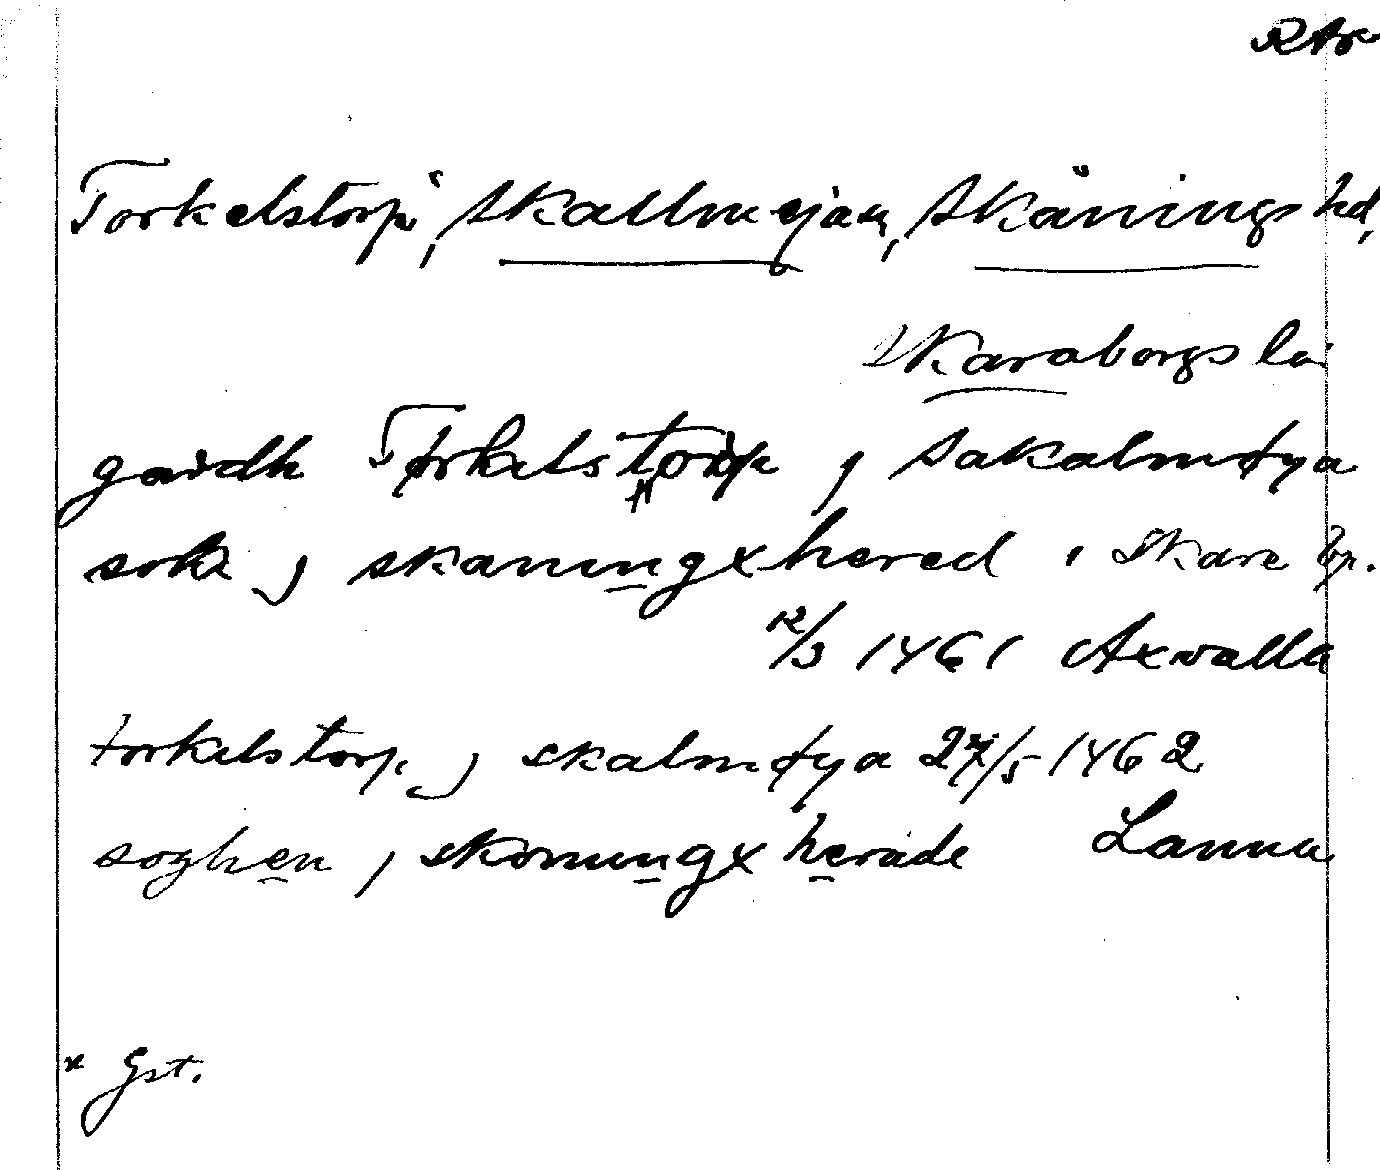 RAp
Torkelstorp*, Skallmejan, Skånings hd,
Skaraborgs län
gardh Tørkelstorp j Sakalmøya
sokn j skaningxhered i Skare bp.
12/3 1461 Axvalla
torkelstorp j skalmøya 27/5 1462
soghen j skoningx herade Lanna
* Gst.